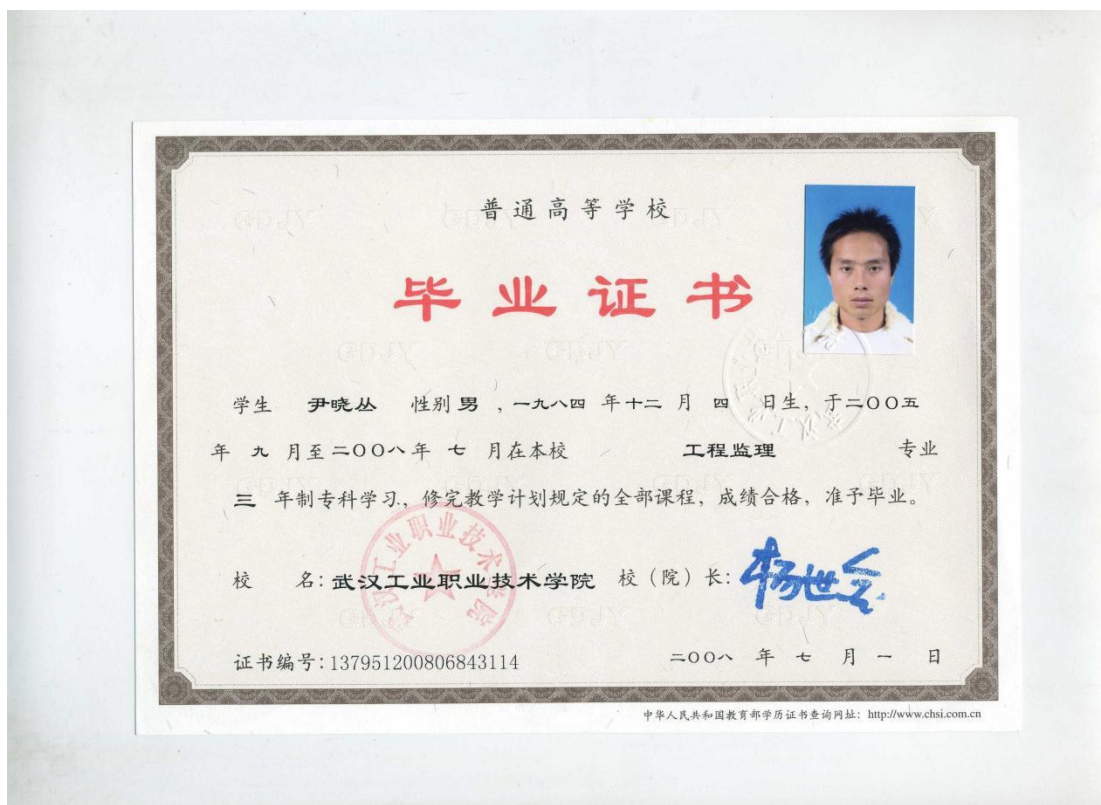 普通高等学校
毕业证书
学生 尹晓丛 性别 男 ,一九八四 年十二 月 四 日生, 于二〇〇五
年 九 月至二〇〇八年 七 月在本校 工程监理 专业
三 年制专科学习, 修完教学计划规定的全部课程, 成绩合格, 准予毕业。
校 名: 武汉工业职业技术学院 校(院)长:
武汉工业职业技术学院
证书编号: 137951200806843114 二〇〇八 年 七 月 一 日
中华人民共和国教育部学历证书查询网址: http://www.chsi.com.cn